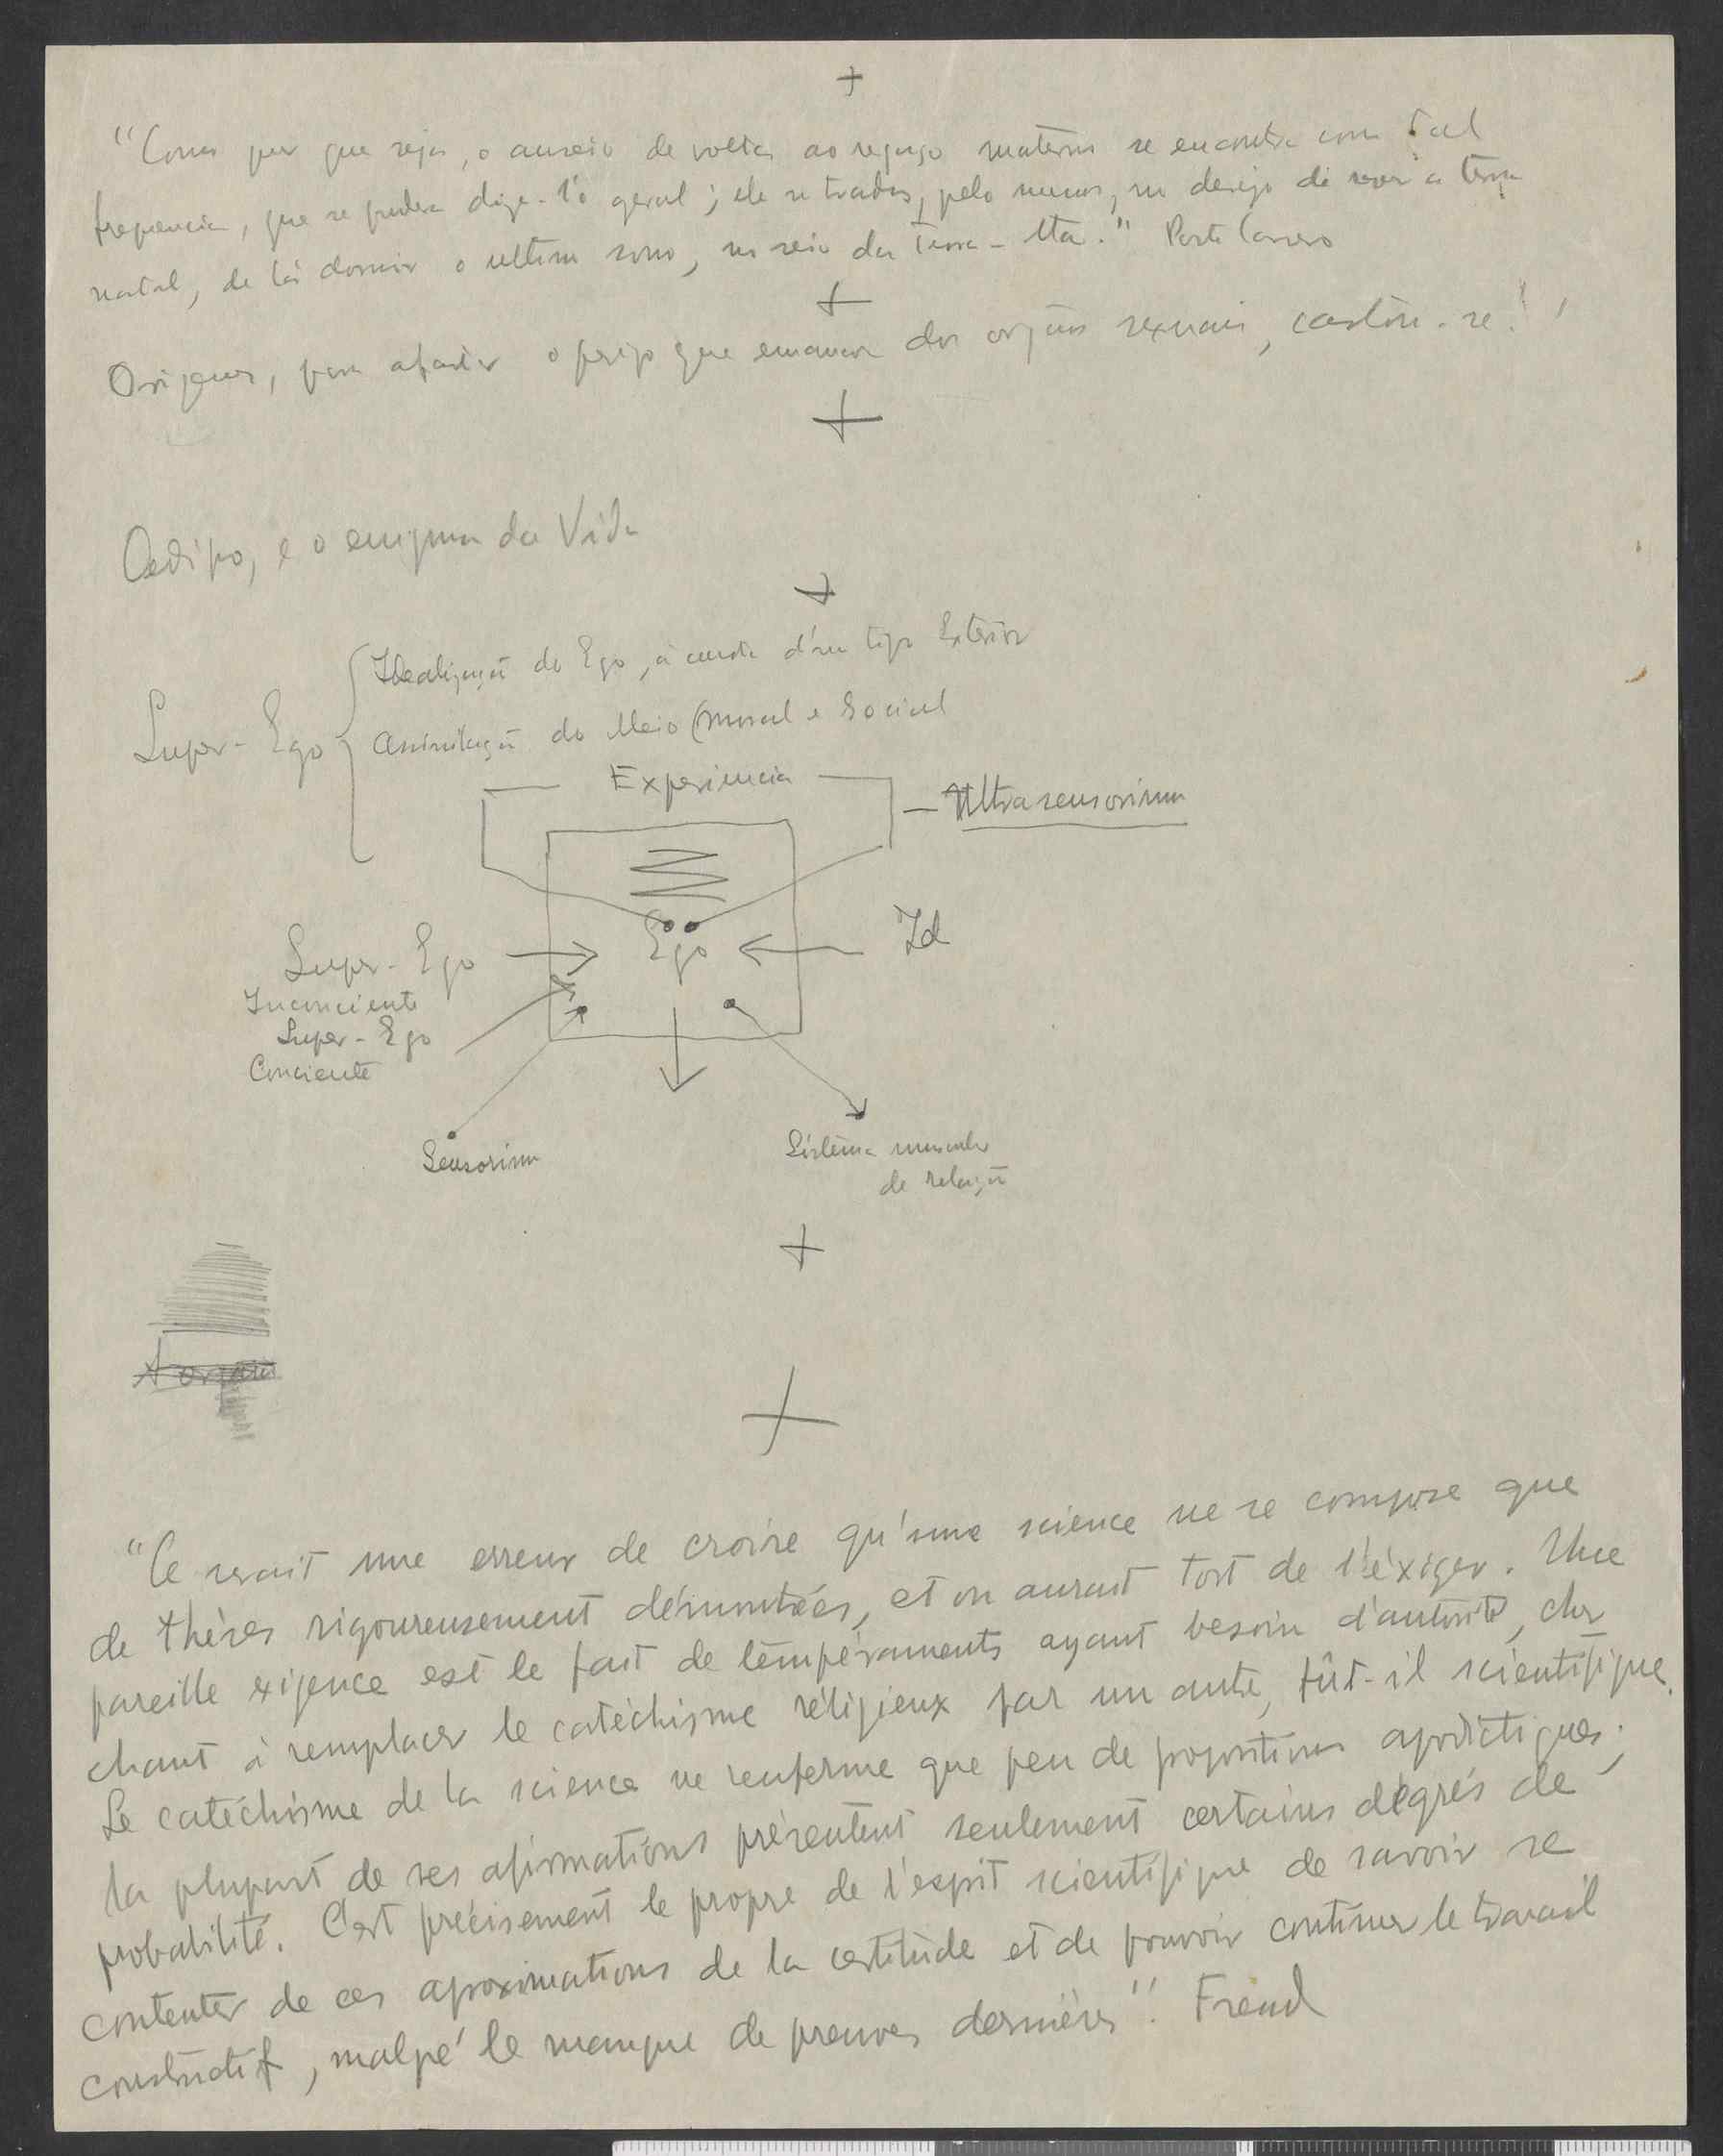 +
"Como quer que seja, o anseio de volta ao regaço materno se encontra com tal
frequencia, que se pudera dize-l'o geral; ele se traduz, pelo menos, no desejo de rever a terra
natal, de lá dormir o ultimo sono, no seio da Terra-Mta." Porto Carrero
+
Origenes, para afastar o perigo que emanava dos orgãos sexuais, castrou-se!
+
Oedipo, e o enigma da Vida
+
Idealização do Ego, á custa d'um tipo Exterior
Super-Ego
Assimilação do Meio (moral e Social
Experiencia
- Ultrasensorium
Super-Ego
Inconciente
Ego
Id
Super-Ego
Conciente
Sensorium
Sistema muscular
de relação
+
+
"Ce serait une erreur de croire qu'une science ne se compose que
de thèses rigoureusement démontrées, et on aurait tort de l'éxiger. Une
pareille exigence est le fait de tempéraments ayant besoin d'autorité, cher
chant à remplacer le catéchisme réligieux par un autre, fût-il scientifique.
Le catéchisme de la science ne renferme que peu de propositions apodictiques;
la plupart de ses afirmations présentent seulement certains dégrés de
probabilité. C'est précisement le propre de l'esprit scientifique de savoir se
contenter de ces aproximations de la certitude et de pouvoir continuer le travail
constructif, malgré le manque de preuves dernières". Freud